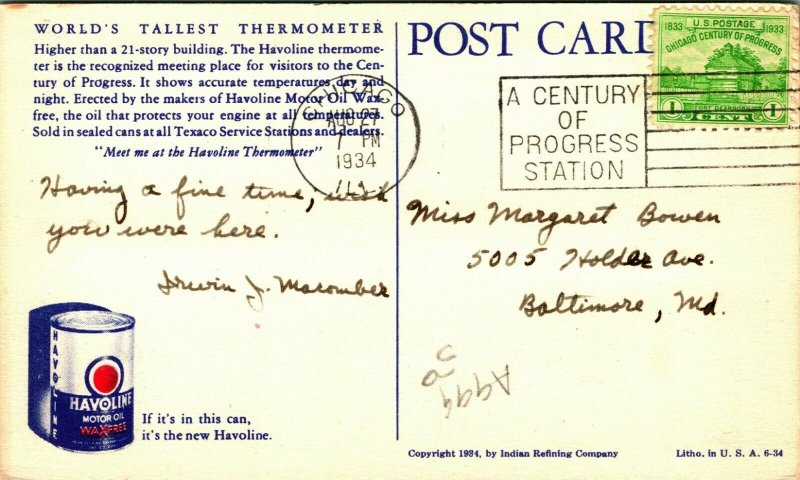 WORLD'S TALLEST THERMOMETER
Higher than a 21-story building. The Havoline thermome-
ter is the recognized meeting place for visitors to the Cen-
tury of Progress. It shows accurate temperatures day and
night. Erected by the makers of Havoline Motor Oil Wax-
free, the oil that protects your engine at all temperatures.
Sold in sealed cans at all Texaco Service Stations and dealers.
"Meet me at the Havoline Thermometer"
Having a fine time, wish
you were here.
Irwin J. Macomber
HAVOLINE
HAVOLINE
MOTOR OIL
WAXFREE
If it's in this can,
it's the new Havoline.
POST CARD
CHICAGO
AUG 27
7 PM
1934
ILL.
A CENTURY
OF
PROGRESS
STATION
1833 U.S. POSTAGE 1933
CHICAGO CENTURY OF PROGRESS
FORT DEARBORN
1 CENT 1
Miss Margaret Bowen
5005 Holder Ave.
Baltimore, Md.
Copyright 1934, by Indian Refining Company
Litho. in U. S. A. 6-34